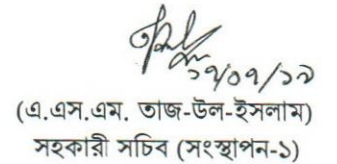 ১৭/০৭/১৯
(এ.এস.এম. তাজ-উল-ইসলাম)
সহকারী সচিব (সংস্থাপন-১)